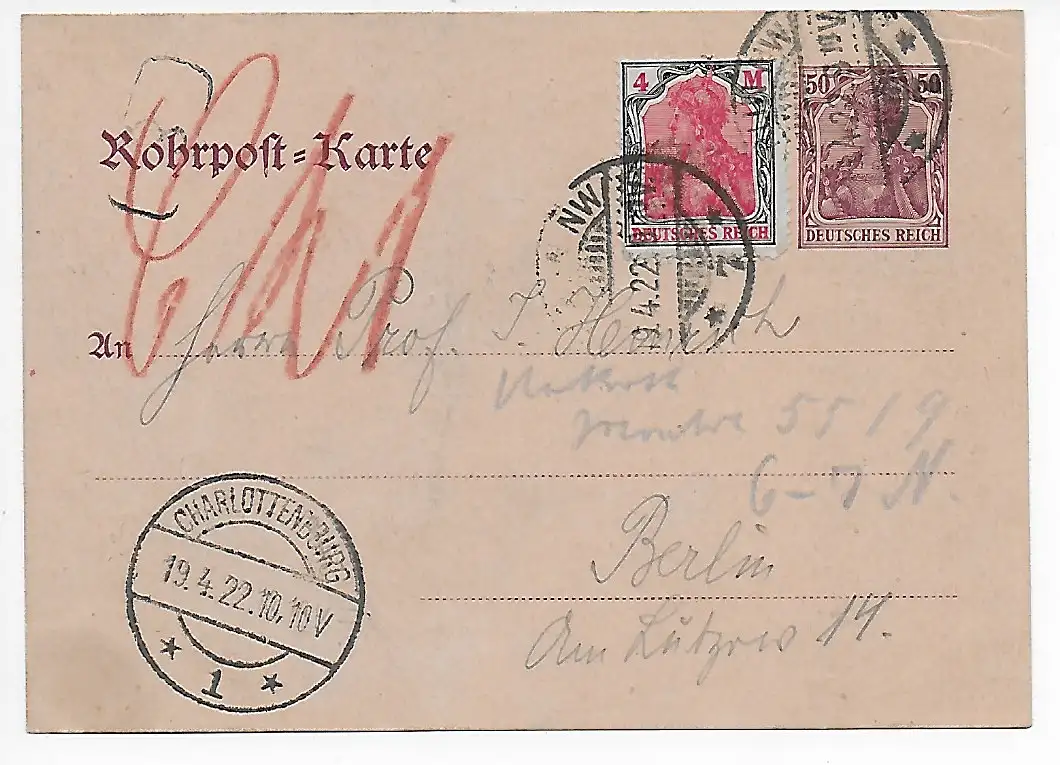 Rohrpost=Karte
4 M
DEUTSCHES REICH
50 50
DEUTSCHES REICH
NW
NW
4.22
7
An Herrn Prof. J.
55 / 9
6-7 N.
Berlin
Am Lützow 14.
CHARLOTTENBURG
19.4.22.10,10V
* 1 *